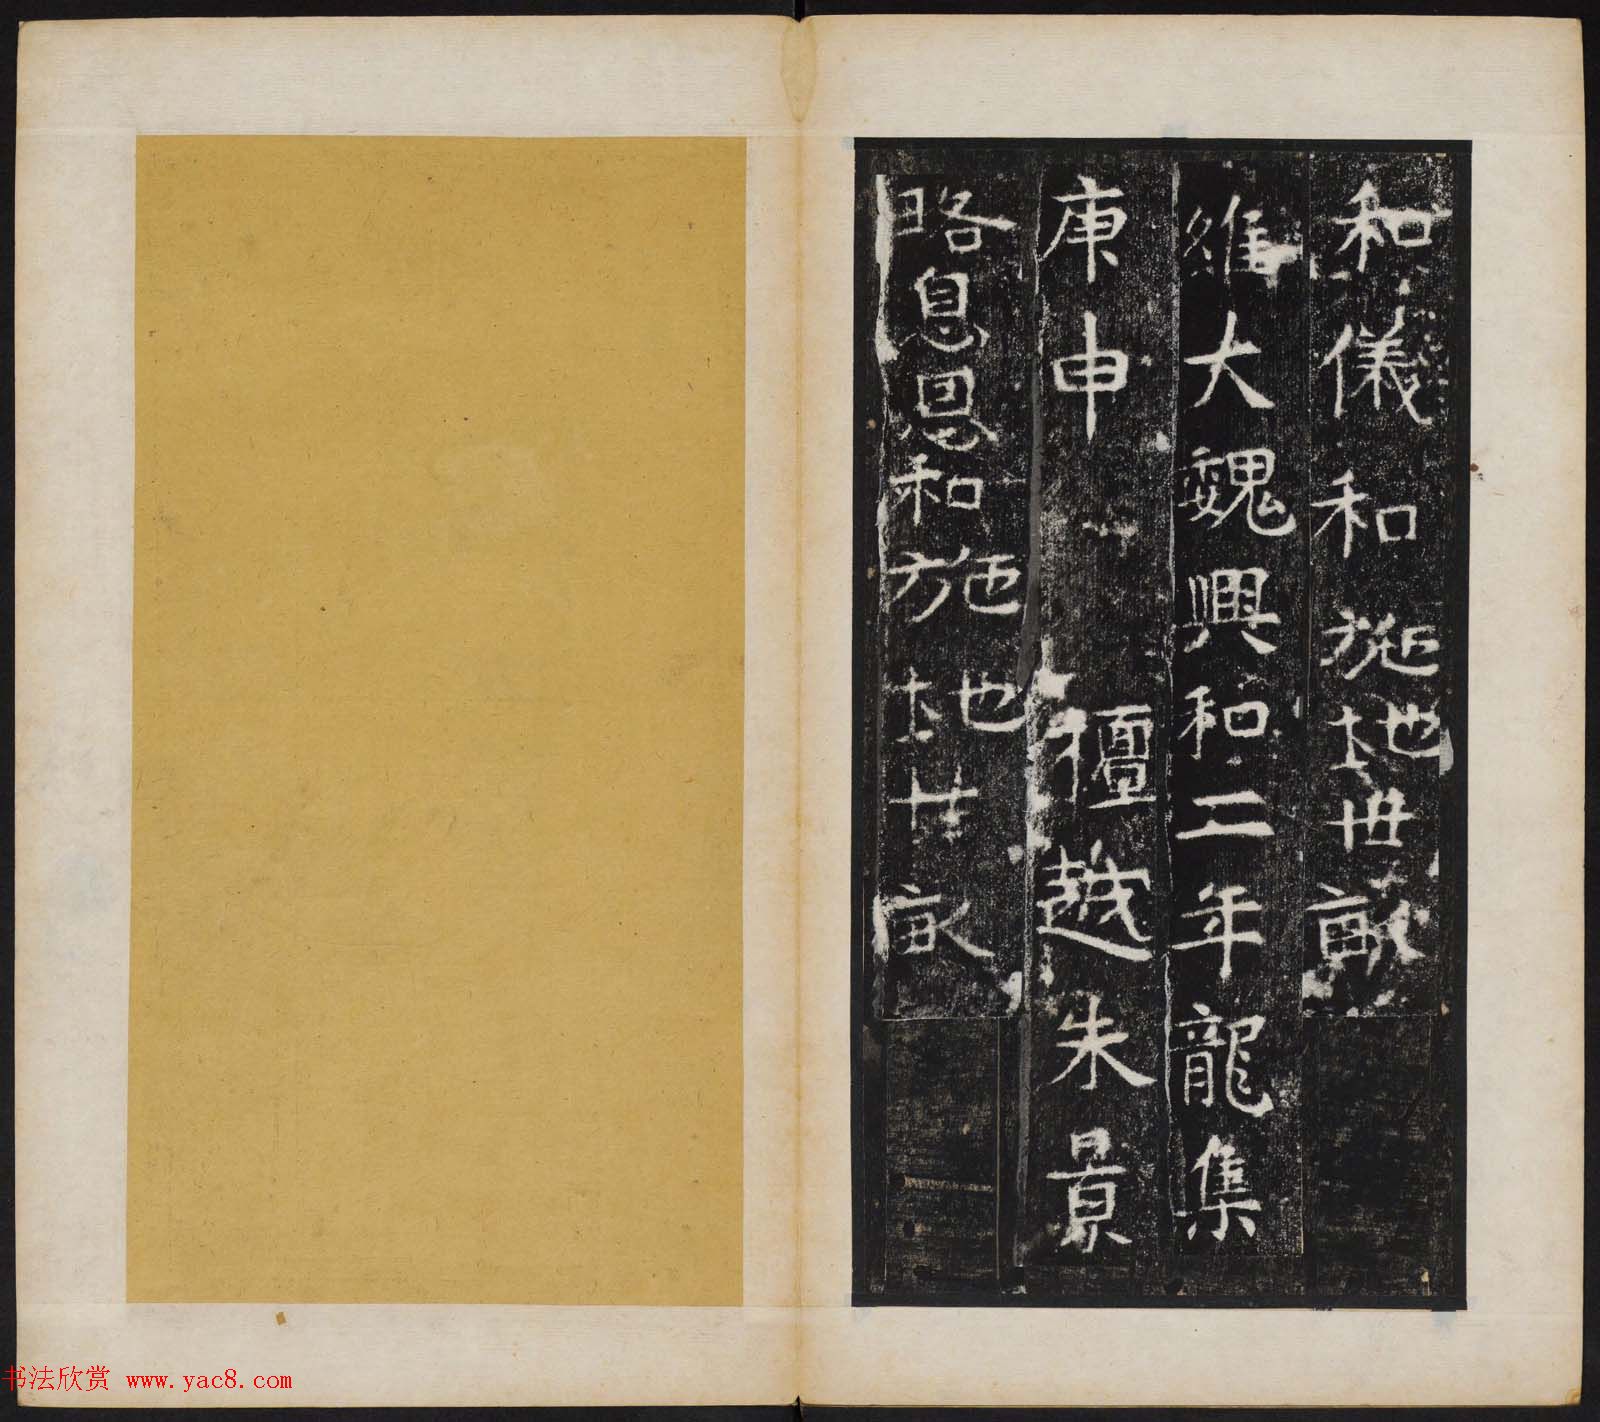 和儀和施地卅畝
維大魏興和二年龍集
庚申 檀越朱景
略息思和施地廿畝
书法欣赏 www.yac8.com